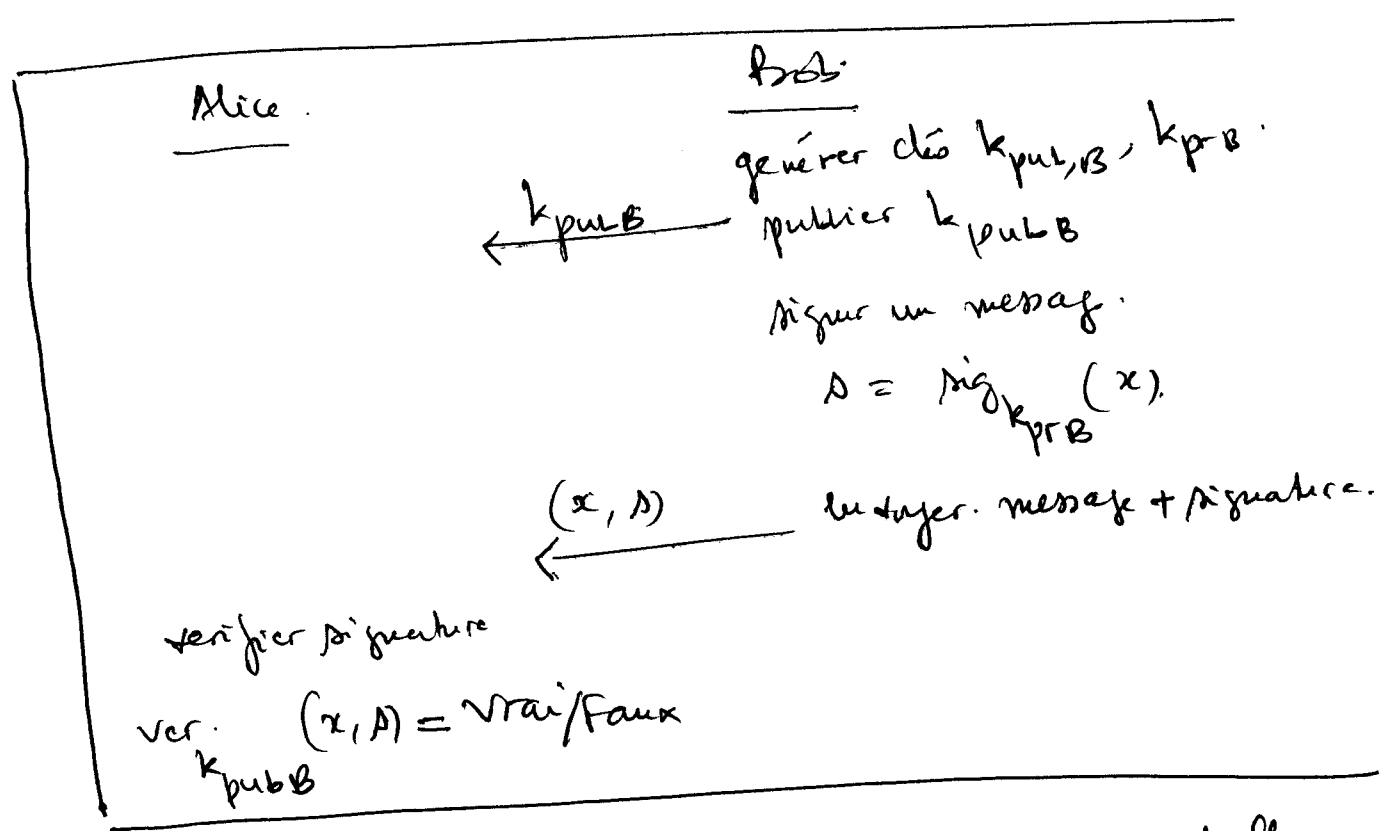 Alice.
Bob.
générer clés k_pub,B, k_prB.
k_pubB
publier k_pubB
signer un messag.
s = sig_k_prB (x).
(x, s)
envoyer. message + signature.
verifier signature
ver._k_pubB (x, s) = Vrai/Faux